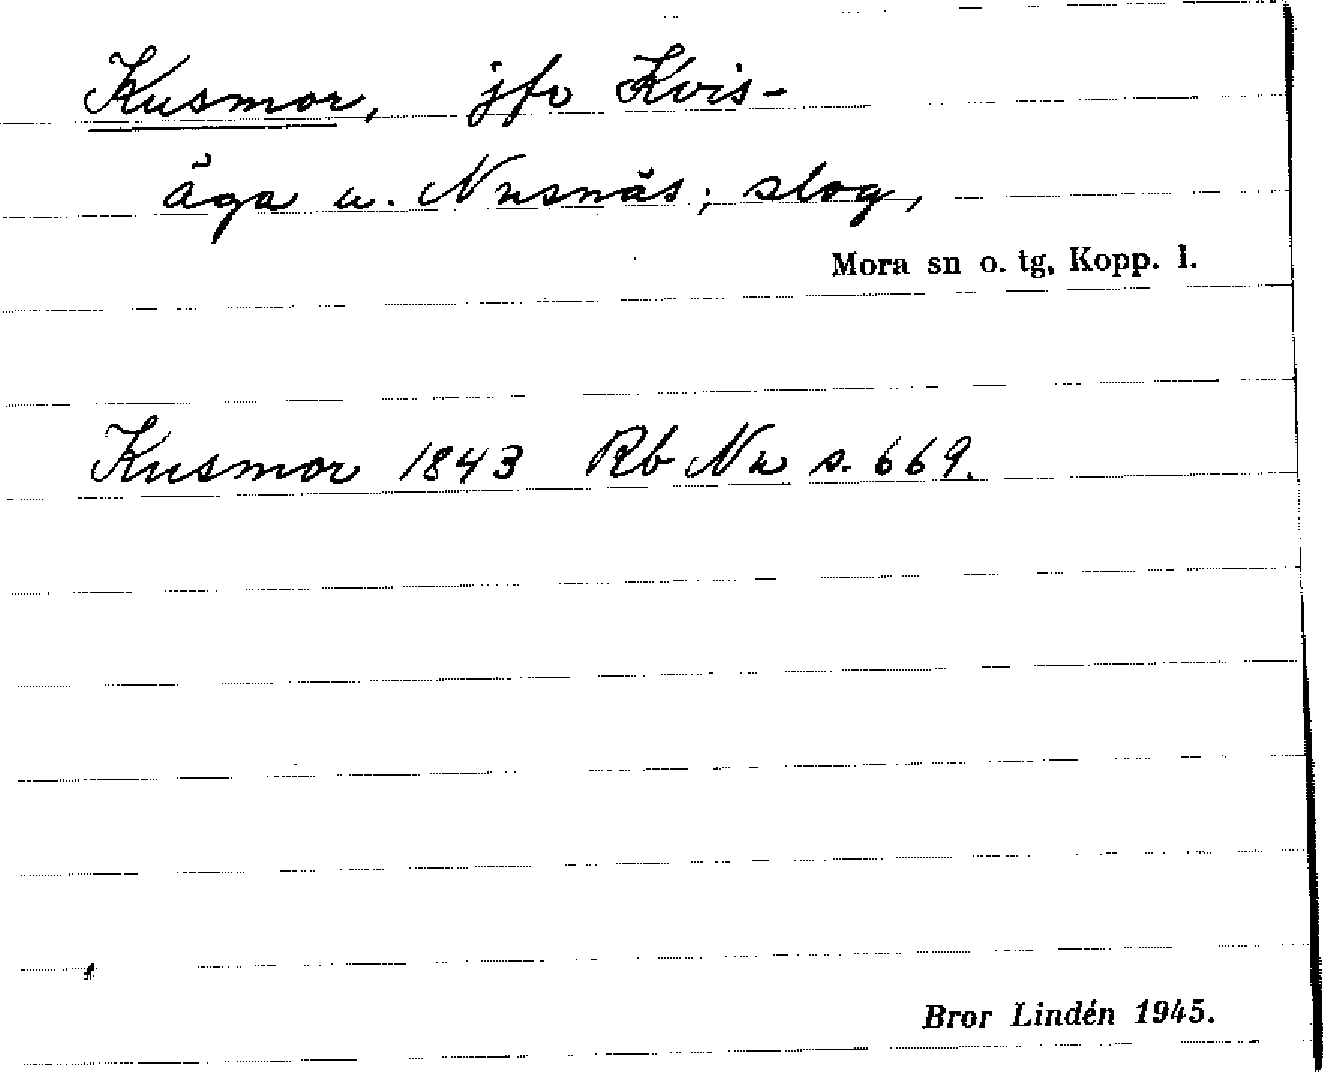 Kusmor, jfo Kvis-
åga u. Nusnäs; slog,
Mora sn o. tg, Kopp. l.
Kusmor 1843 Rb Nu s. 669.
Bror Lindén 1945.